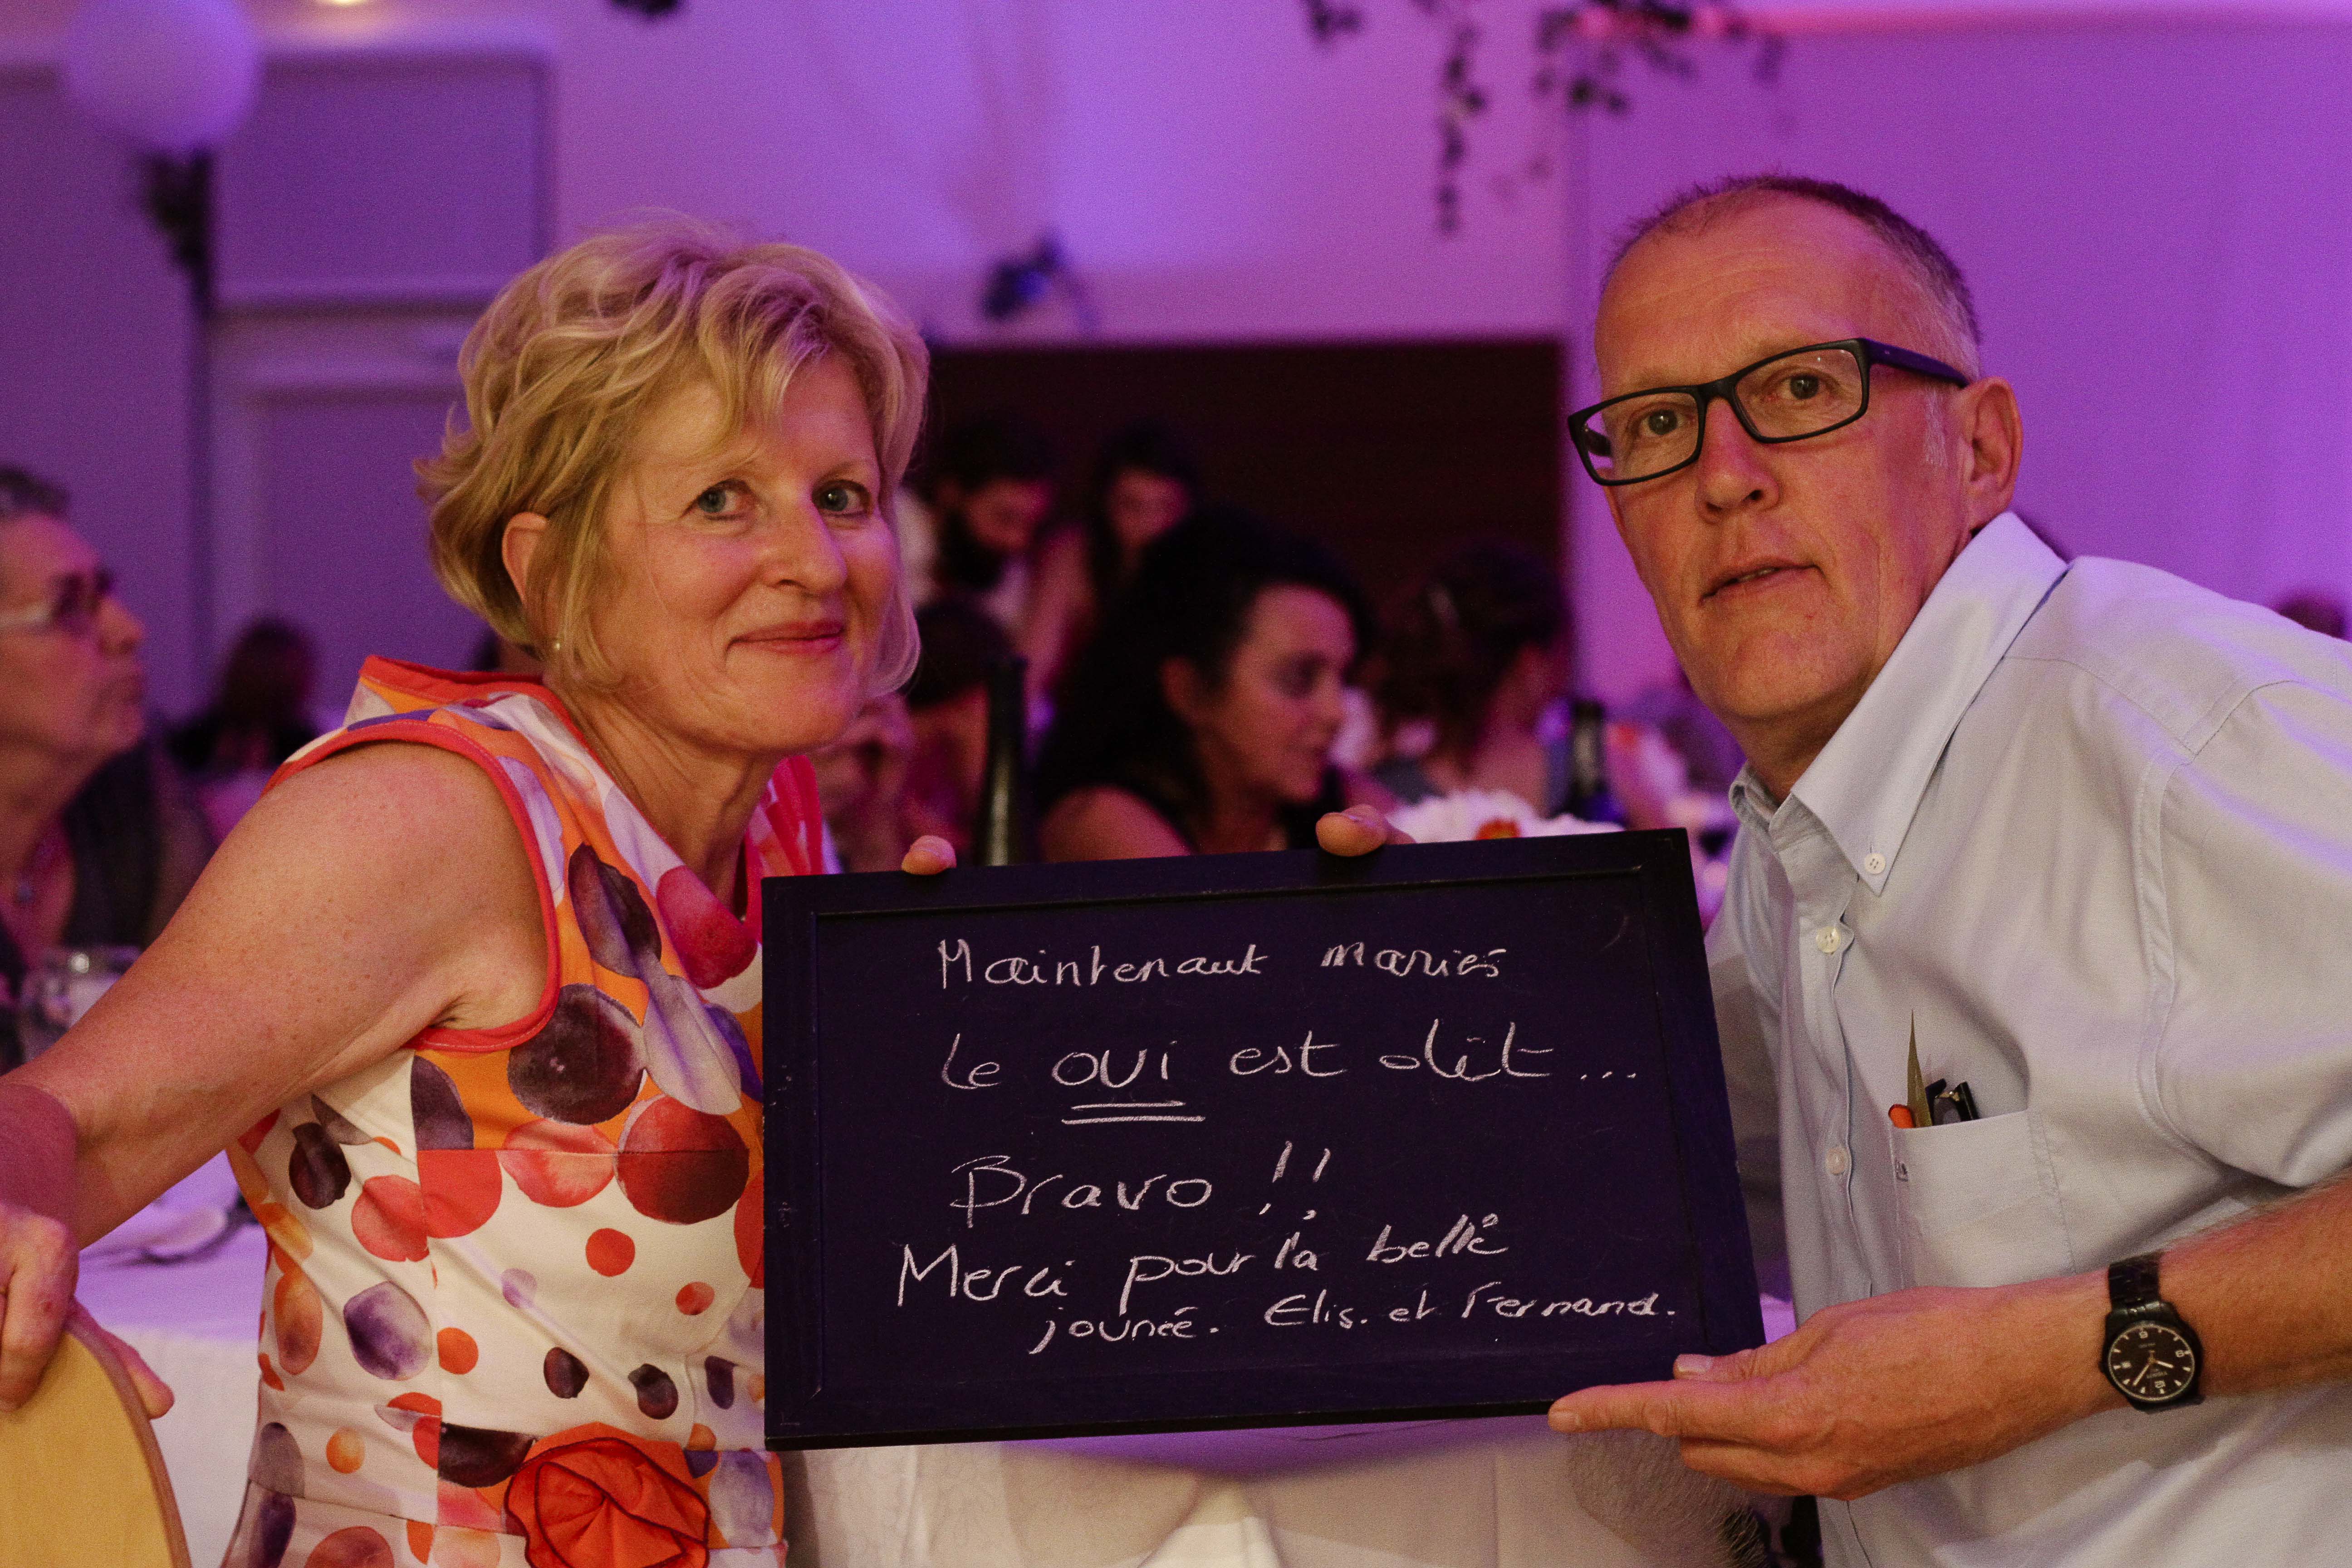 Maintenant mariés
Le OUI est dit...
Bravo !!
Merci pour la belle
jounée. Elis. et Fernand.